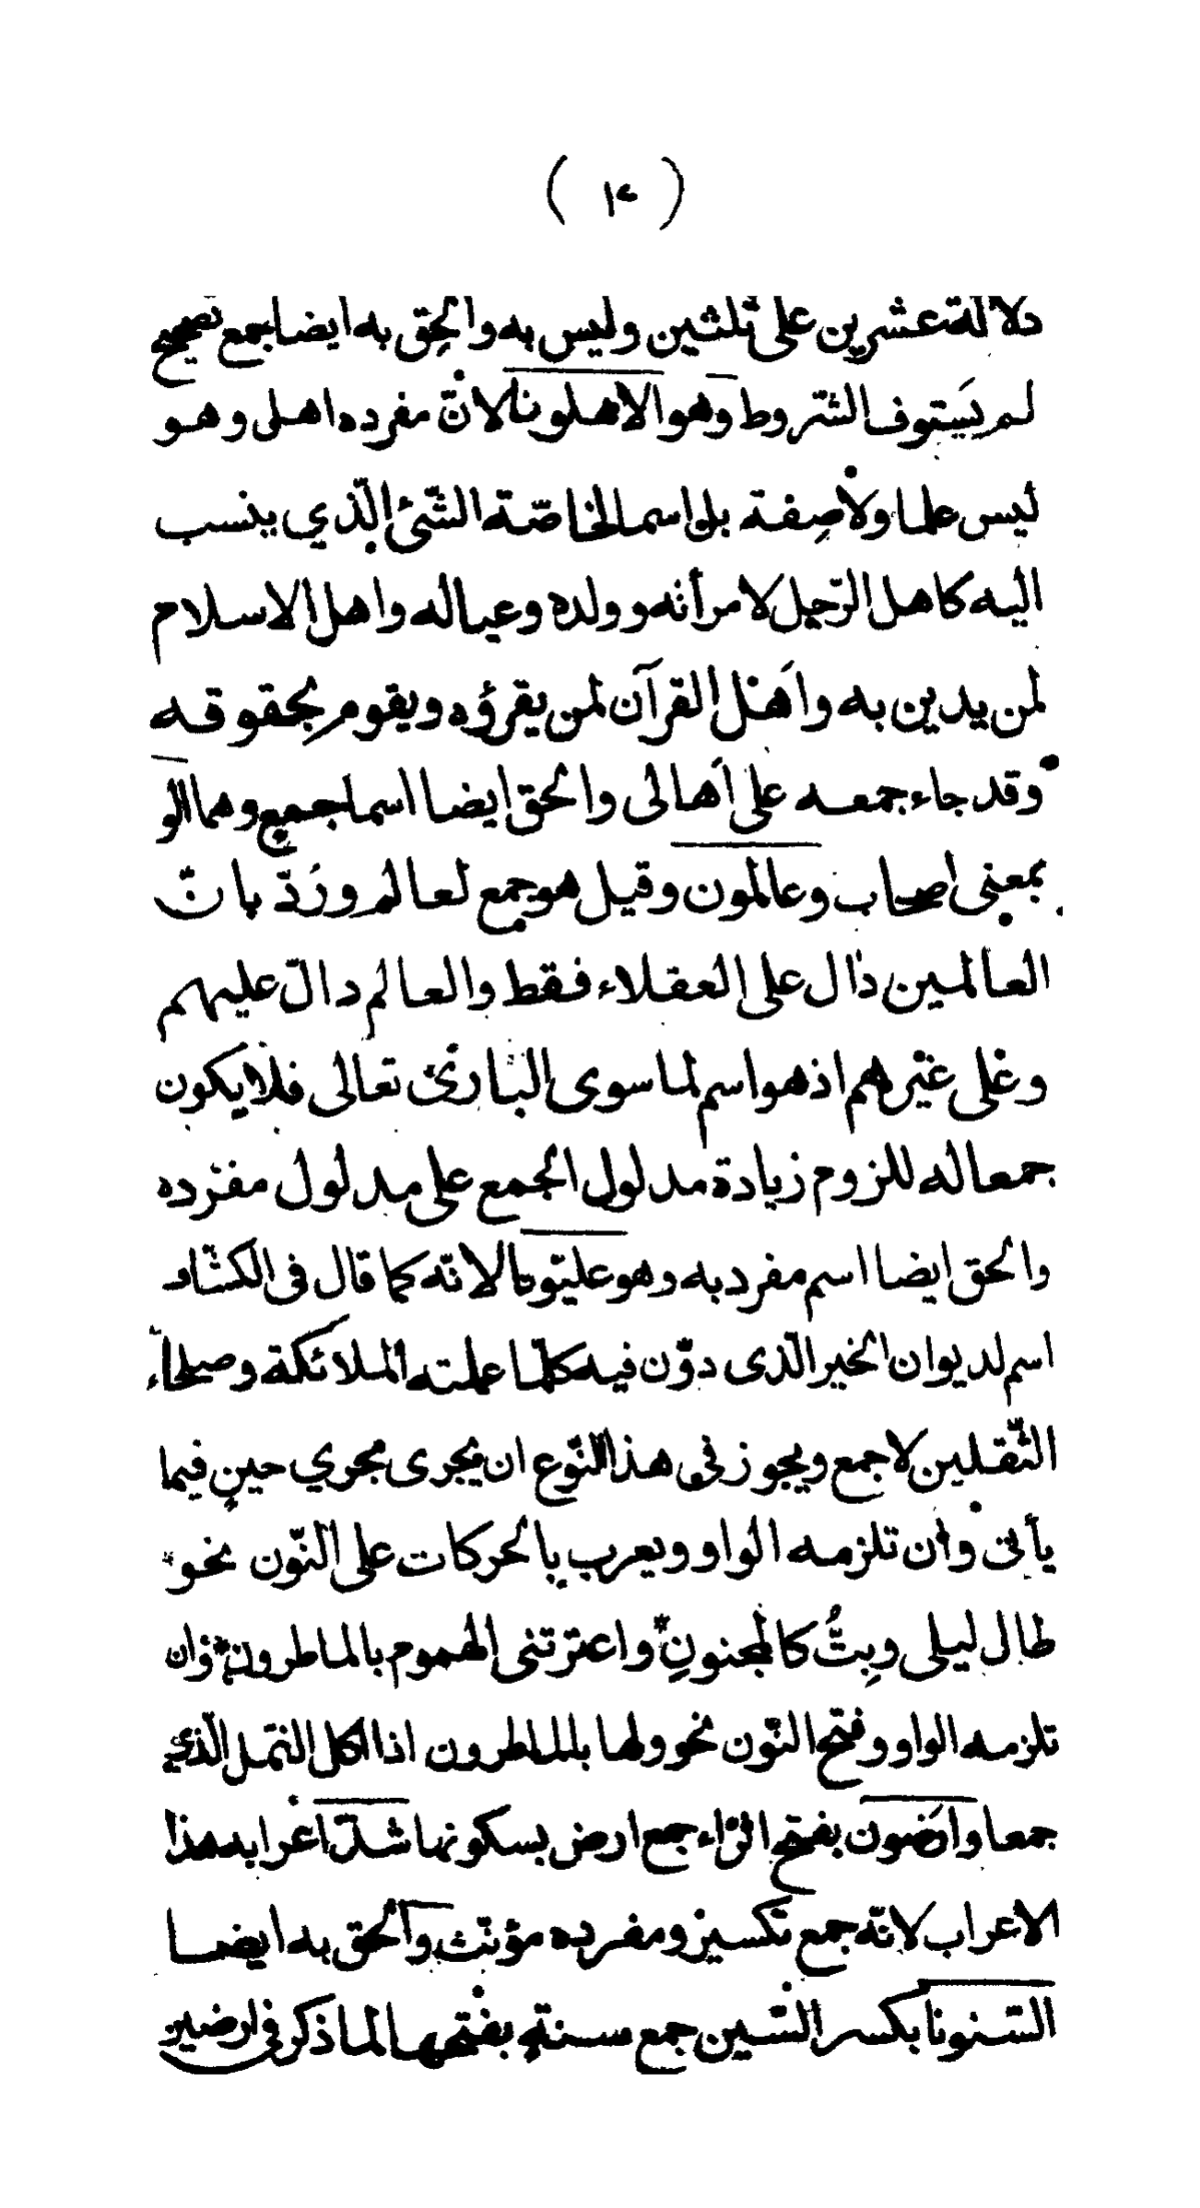 ( ١٤ )
دلالة عشرين على ثلثين وليس به والحق به ايضا جمع تصحيح
لم يستوف الشّروط وهو الاهلونا لانّ مفرده اهل وهو
ليس علما ولا صفة بل اسما لخاصّة الشّئ الّذي ينسب
اليه كاهل الرّجل لامرأته وولده وعياله واهل الاسلام
لمن يدين به واهل القرآن لمن يقرؤه ويقوم بحقوقه
وقد جاء جمعه على اَهالى والحق ايضا اسما جمع وهما الو
بمعنى اصحاب وعالمون وقيل هو جمع لعالم ورَدّ بانّ
العالمين دال على العقلاء فقط والعالم دالّ عليهم
وعلى غيرهم اذ هو اسم لما سوى البارئ تعالى فلا يكون
جمعا له للزوم زيادة مدلول الجمع على مدلول مفرده
والحق ايضا اسم مفرد به وهو عليّونا لانّه كما قال فى الكشّاف
اسم لديوان الخير الّذى دوّن فيه كلّما عملته الملائكة وصلحاء
الثّقلين لا جمع ويجوز فى هذا النّوع ان يجرى مجري حينٍ فيما
يأتى وان تلزمه الواو ويعرب بالحركات على النّون نحو
طال ليلى وبِتُّ كالمجنونِ واعترتنى الهموم بالماطرون وان
تلزمه الواو وفتح النّون نحو ولها بالماطرون اذا اكل النّمل الّذي
جمعا وارَضون بفتح الرّاء جمع ارض بسكونها شذّ اعرابه هذا
الاعراب لانّه جمع تكسير ومفرده مؤنّث والحق به ايضا
السّنونا بكسر السّين جمع سنةٍ بفتحها لما ذكر فى ارضين